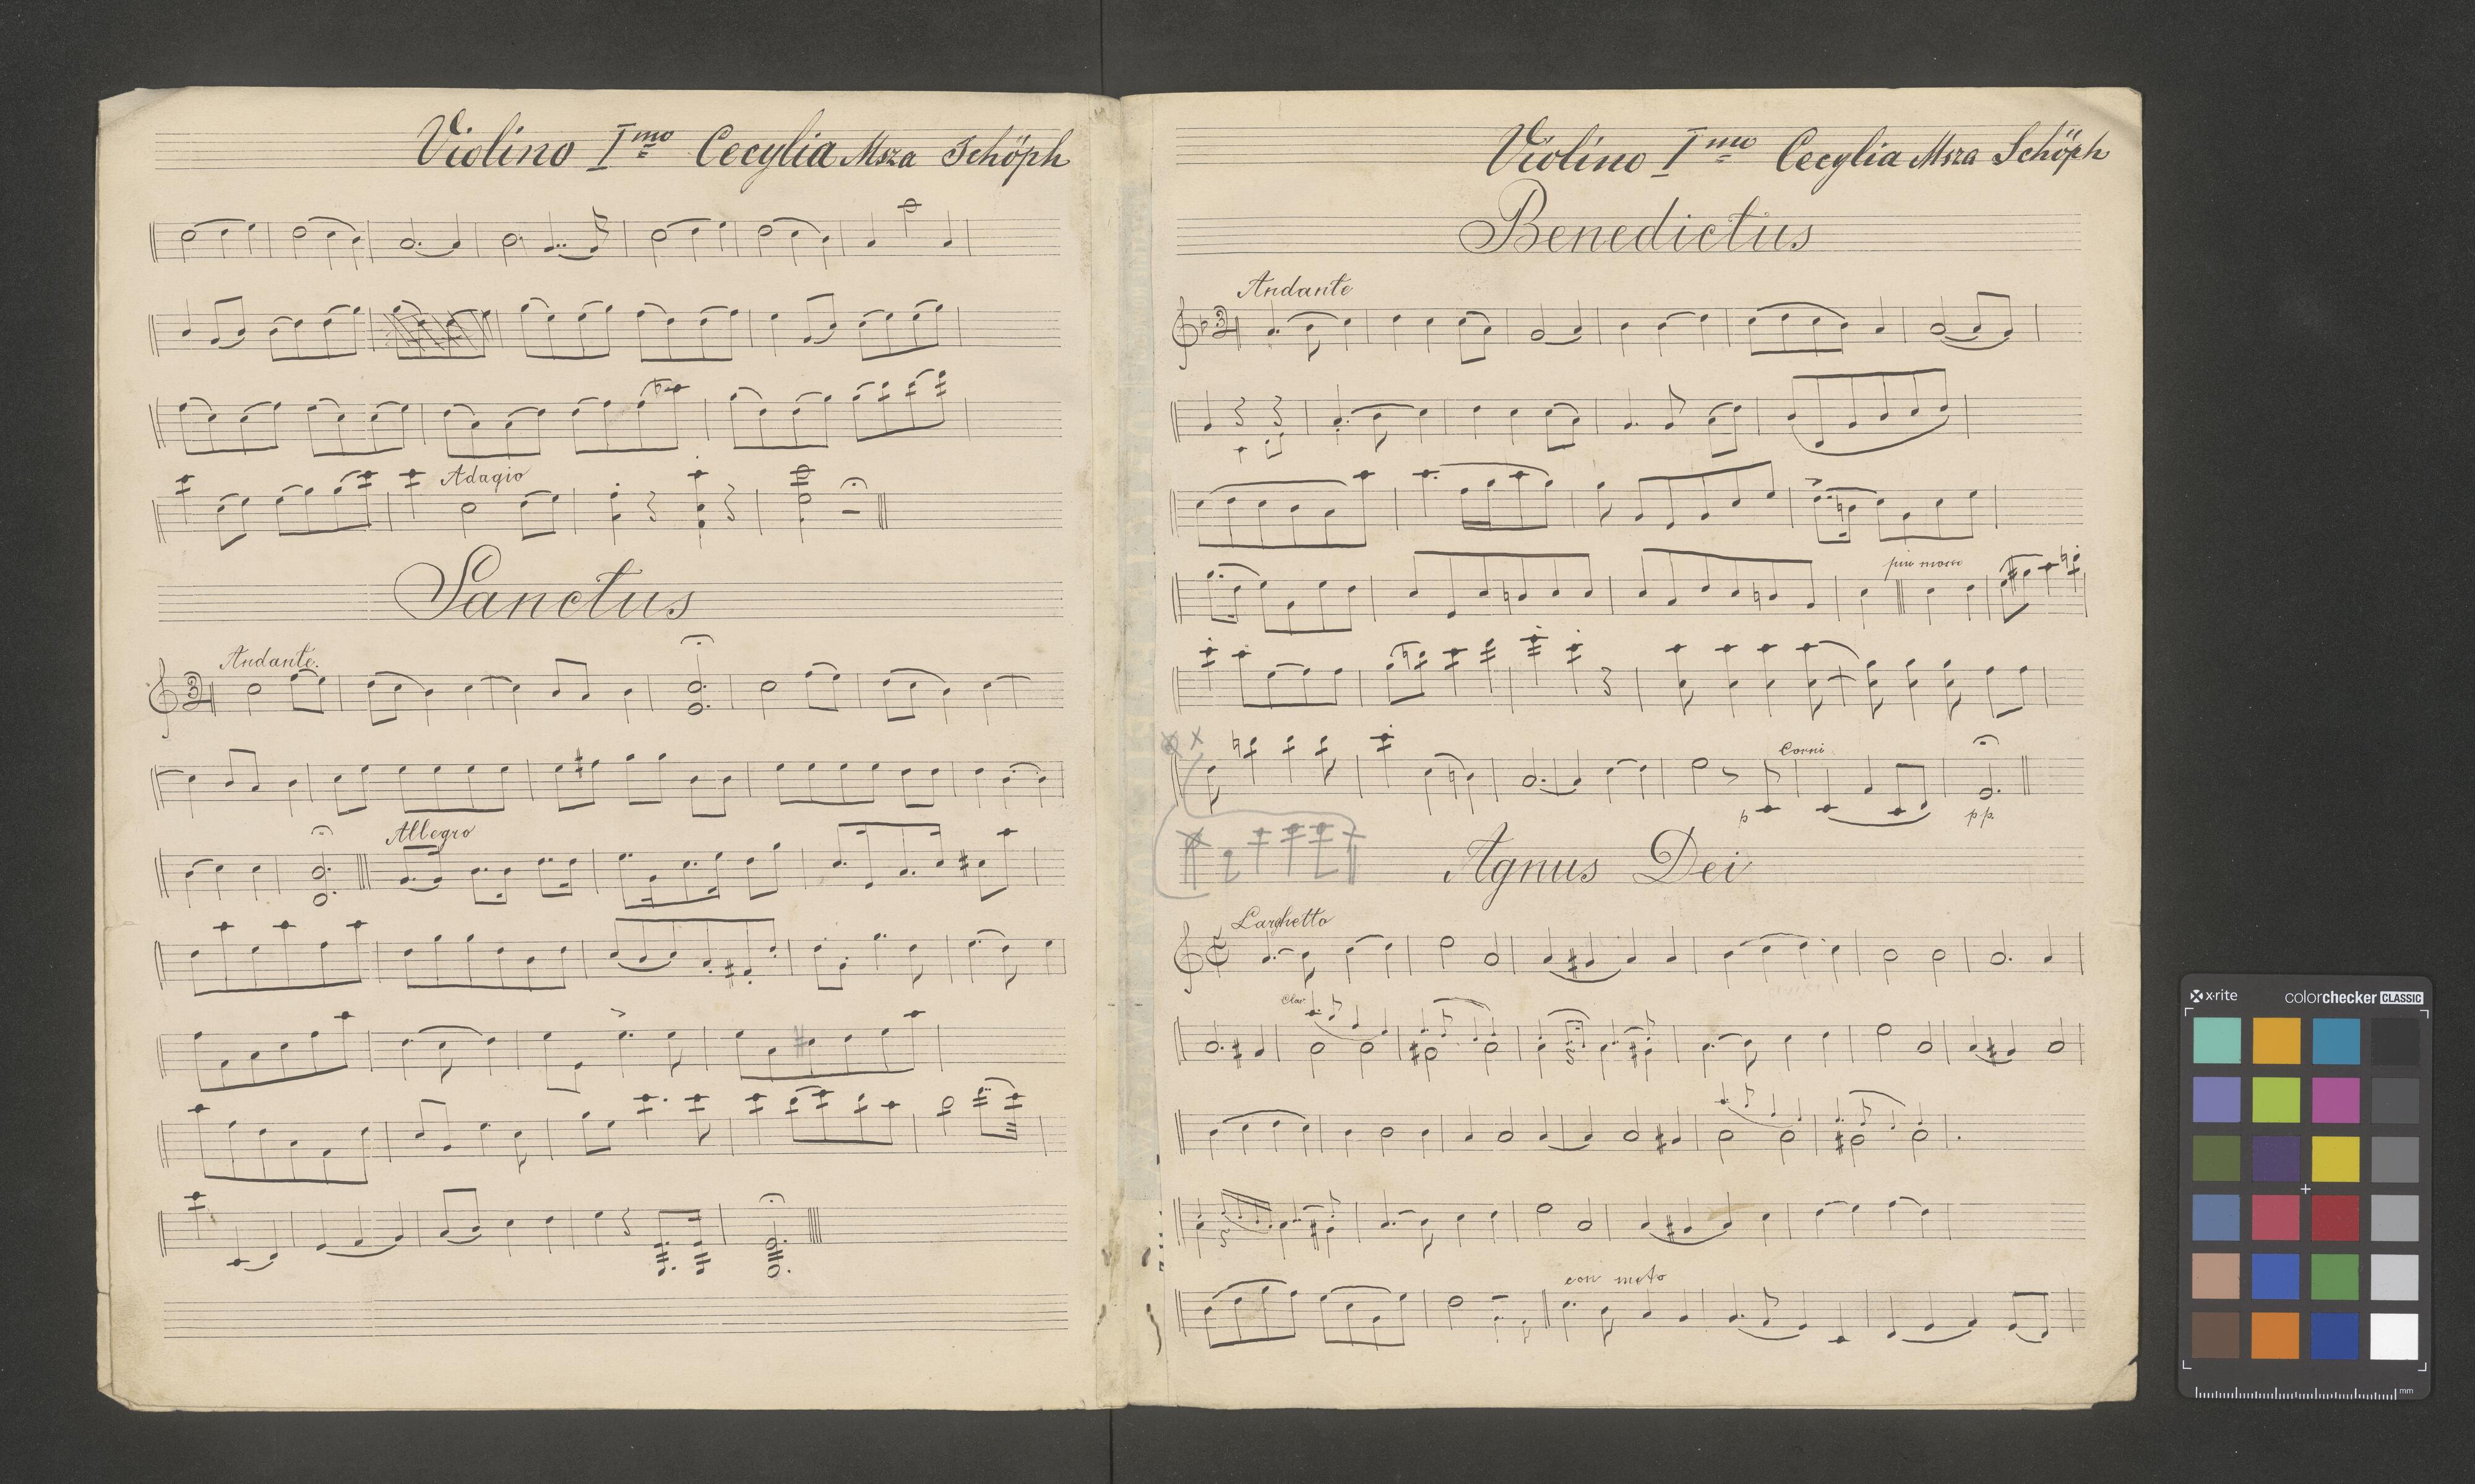 Violino I mo Cecylia Msza Schöph
Adagio
Sanctus
Andante.
Allegro
Violino I mo Cecylia Msza Schöph
Benedictus
Andante
più mosso
Corni
p
pp.
Agnus Dei
Larghetto
Clar.
con moto
x-rite colorchecker CLASSIC
mm